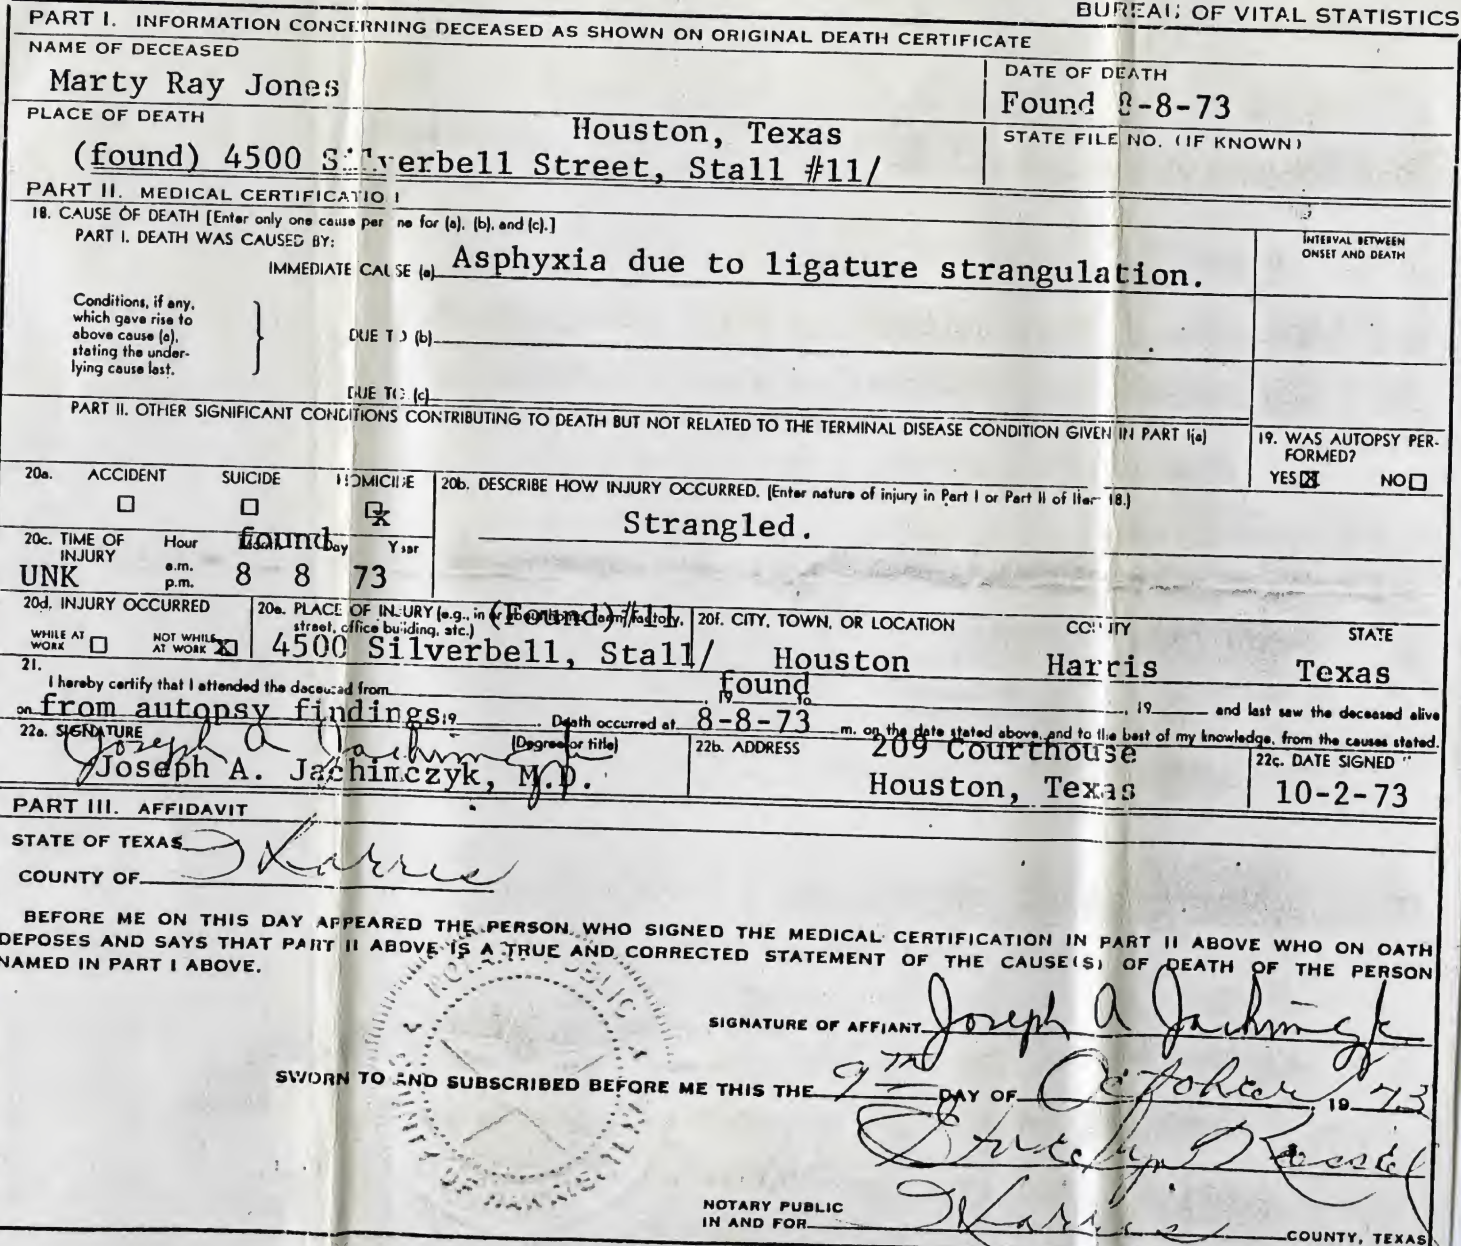 BUREAU OF VITAL STATISTICS
PART I. INFORMATION CONCERNING DECEASED AS SHOWN ON ORIGINAL DEATH CERTIFICATE
NAME OF DECEASED
Marty Ray Jones
DATE OF DEATH
Found 8-8-73
PLACE OF DEATH
Houston, Texas
(found) 4500 Silverbell Street, Stall #11/
STATE FILE NO. (IF KNOWN)
PART II. MEDICAL CERTIFICATION
18. CAUSE OF DEATH [Enter only one cause per line for (a), (b), and (c).]
PART I. DEATH WAS CAUSED BY:
IMMEDIATE CAUSE (a) Asphyxia due to ligature strangulation.
INTERVAL BETWEEN
ONSET AND DEATH
Conditions, if any,
which gave rise to
above cause (a),
stating the under-
lying cause last.
DUE TO (b)
DUE TO (c)
PART II. OTHER SIGNIFICANT CONDITIONS CONTRIBUTING TO DEATH BUT NOT RELATED TO THE TERMINAL DISEASE CONDITION GIVEN IN PART I(a)
19. WAS AUTOPSY PER-
FORMED?
YES X NO
20a. ACCIDENT SUICIDE HOMICIDE
X
20b. DESCRIBE HOW INJURY OCCURRED. (Enter nature of injury in Part I or Part II of Item 18.)
Strangled.
20c. TIME OF INJURY Hour Day Year
found
UNK a.m. p.m. 8 8 73
20d. INJURY OCCURRED
WHILE AT WORK NOT WHILE AT WORK X
20e. PLACE OF INJURY (e.g., in or about home, farm, factory,
street, office building, etc.) (Found) #11
4500 Silverbell, Stall/
20f. CITY, TOWN, OR LOCATION COUNTY STATE
Houston Harris Texas
21.
I hereby certify that I attended the deceased from 19 to , 19 and last saw the deceased alive
found
on from autopsy findings 19 . Death occurred at 8-8-73 m. on the date stated above, and to the best of my knowledge, from the causes stated.
22a. SIGNATURE (Degree or title)
Joseph A Jachimczyk
Joseph A. Jachimczyk, M.D.
22b. ADDRESS
209 Courthouse
Houston, Texas
22c. DATE SIGNED
10-2-73
PART III. AFFIDAVIT
STATE OF TEXAS
COUNTY OF Harris
BEFORE ME ON THIS DAY APPEARED THE PERSON WHO SIGNED THE MEDICAL CERTIFICATION IN PART II ABOVE WHO ON OATH
DEPOSES AND SAYS THAT PART II ABOVE IS A TRUE AND CORRECTED STATEMENT OF THE CAUSE(S) OF DEATH OF THE PERSON
NAMED IN PART I ABOVE.
NOTARY PUBLIC
COUNTY OF HARRIS, TEXAS
SIGNATURE OF AFFIANT Joseph A Jachimczyk
SWORN TO AND SUBSCRIBED BEFORE ME THIS THE 9TH DAY OF October, 19 73
NOTARY PUBLIC
IN AND FOR Harris COUNTY, TEXAS